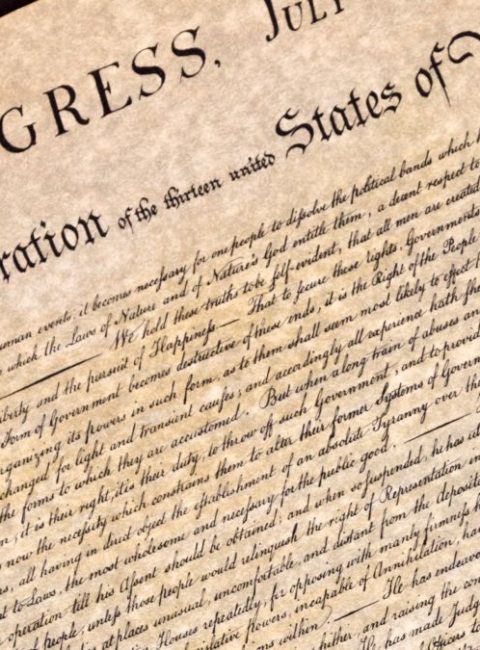 GRESS, JULY
ration of the thirteen united States of
uman events, it becomes necefsary for one people to difsolve the political bands which
which the Laws of Nature and of Nature's God entitle them, a decent respect to
We hold these truths to be self-evident, that all men are created
iberty and the pursuit of Happinefs.— That to secure these rights, Governments
Form of Government becomes destructive of these ends, it is the Right of the People
rganizing its powers in such form, as to them shall seem most likely to effect
changed for light and transient causes; and accordingly all experience hath she
the forms to which they are accustomed. But when a long train of abuses an
n, it is their right, it is their duty, to throw off such Government, and to provid
now the necefsity which constrains them to alter their former Systems of Govern
s, all having in direct object the establishment of an absolute Tyranny over the
t to Laws, the most wholesome and necefsary for the public good.
operation till his Afsent should be obtained; and when so suspended, he has
people, unlefs those people would relinquish the right of Representation in
at places unusual, uncomfortable, and distant from the deposito
Houses repeatedly, for opposing with manly firmnefs
islative powers, incapable of Annihilation, ha
ons within. He has endeavo
hither, and raising the con
He has made Judg
Officers to